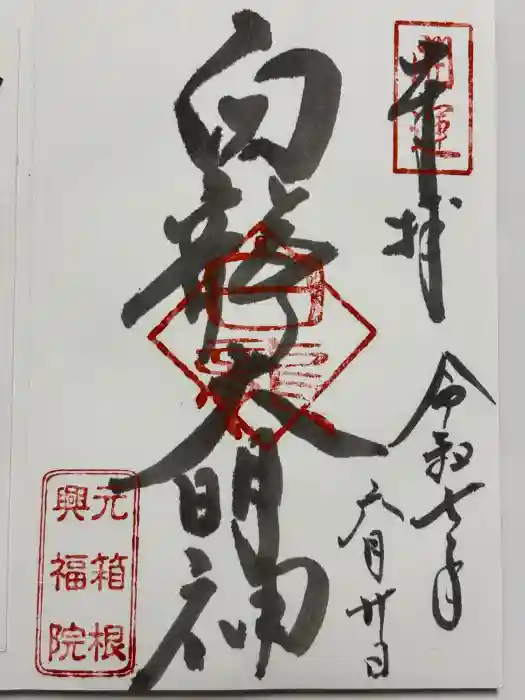 奉拝
開運
令和七年
六月卅日
白龍大明神
元箱根
興福院